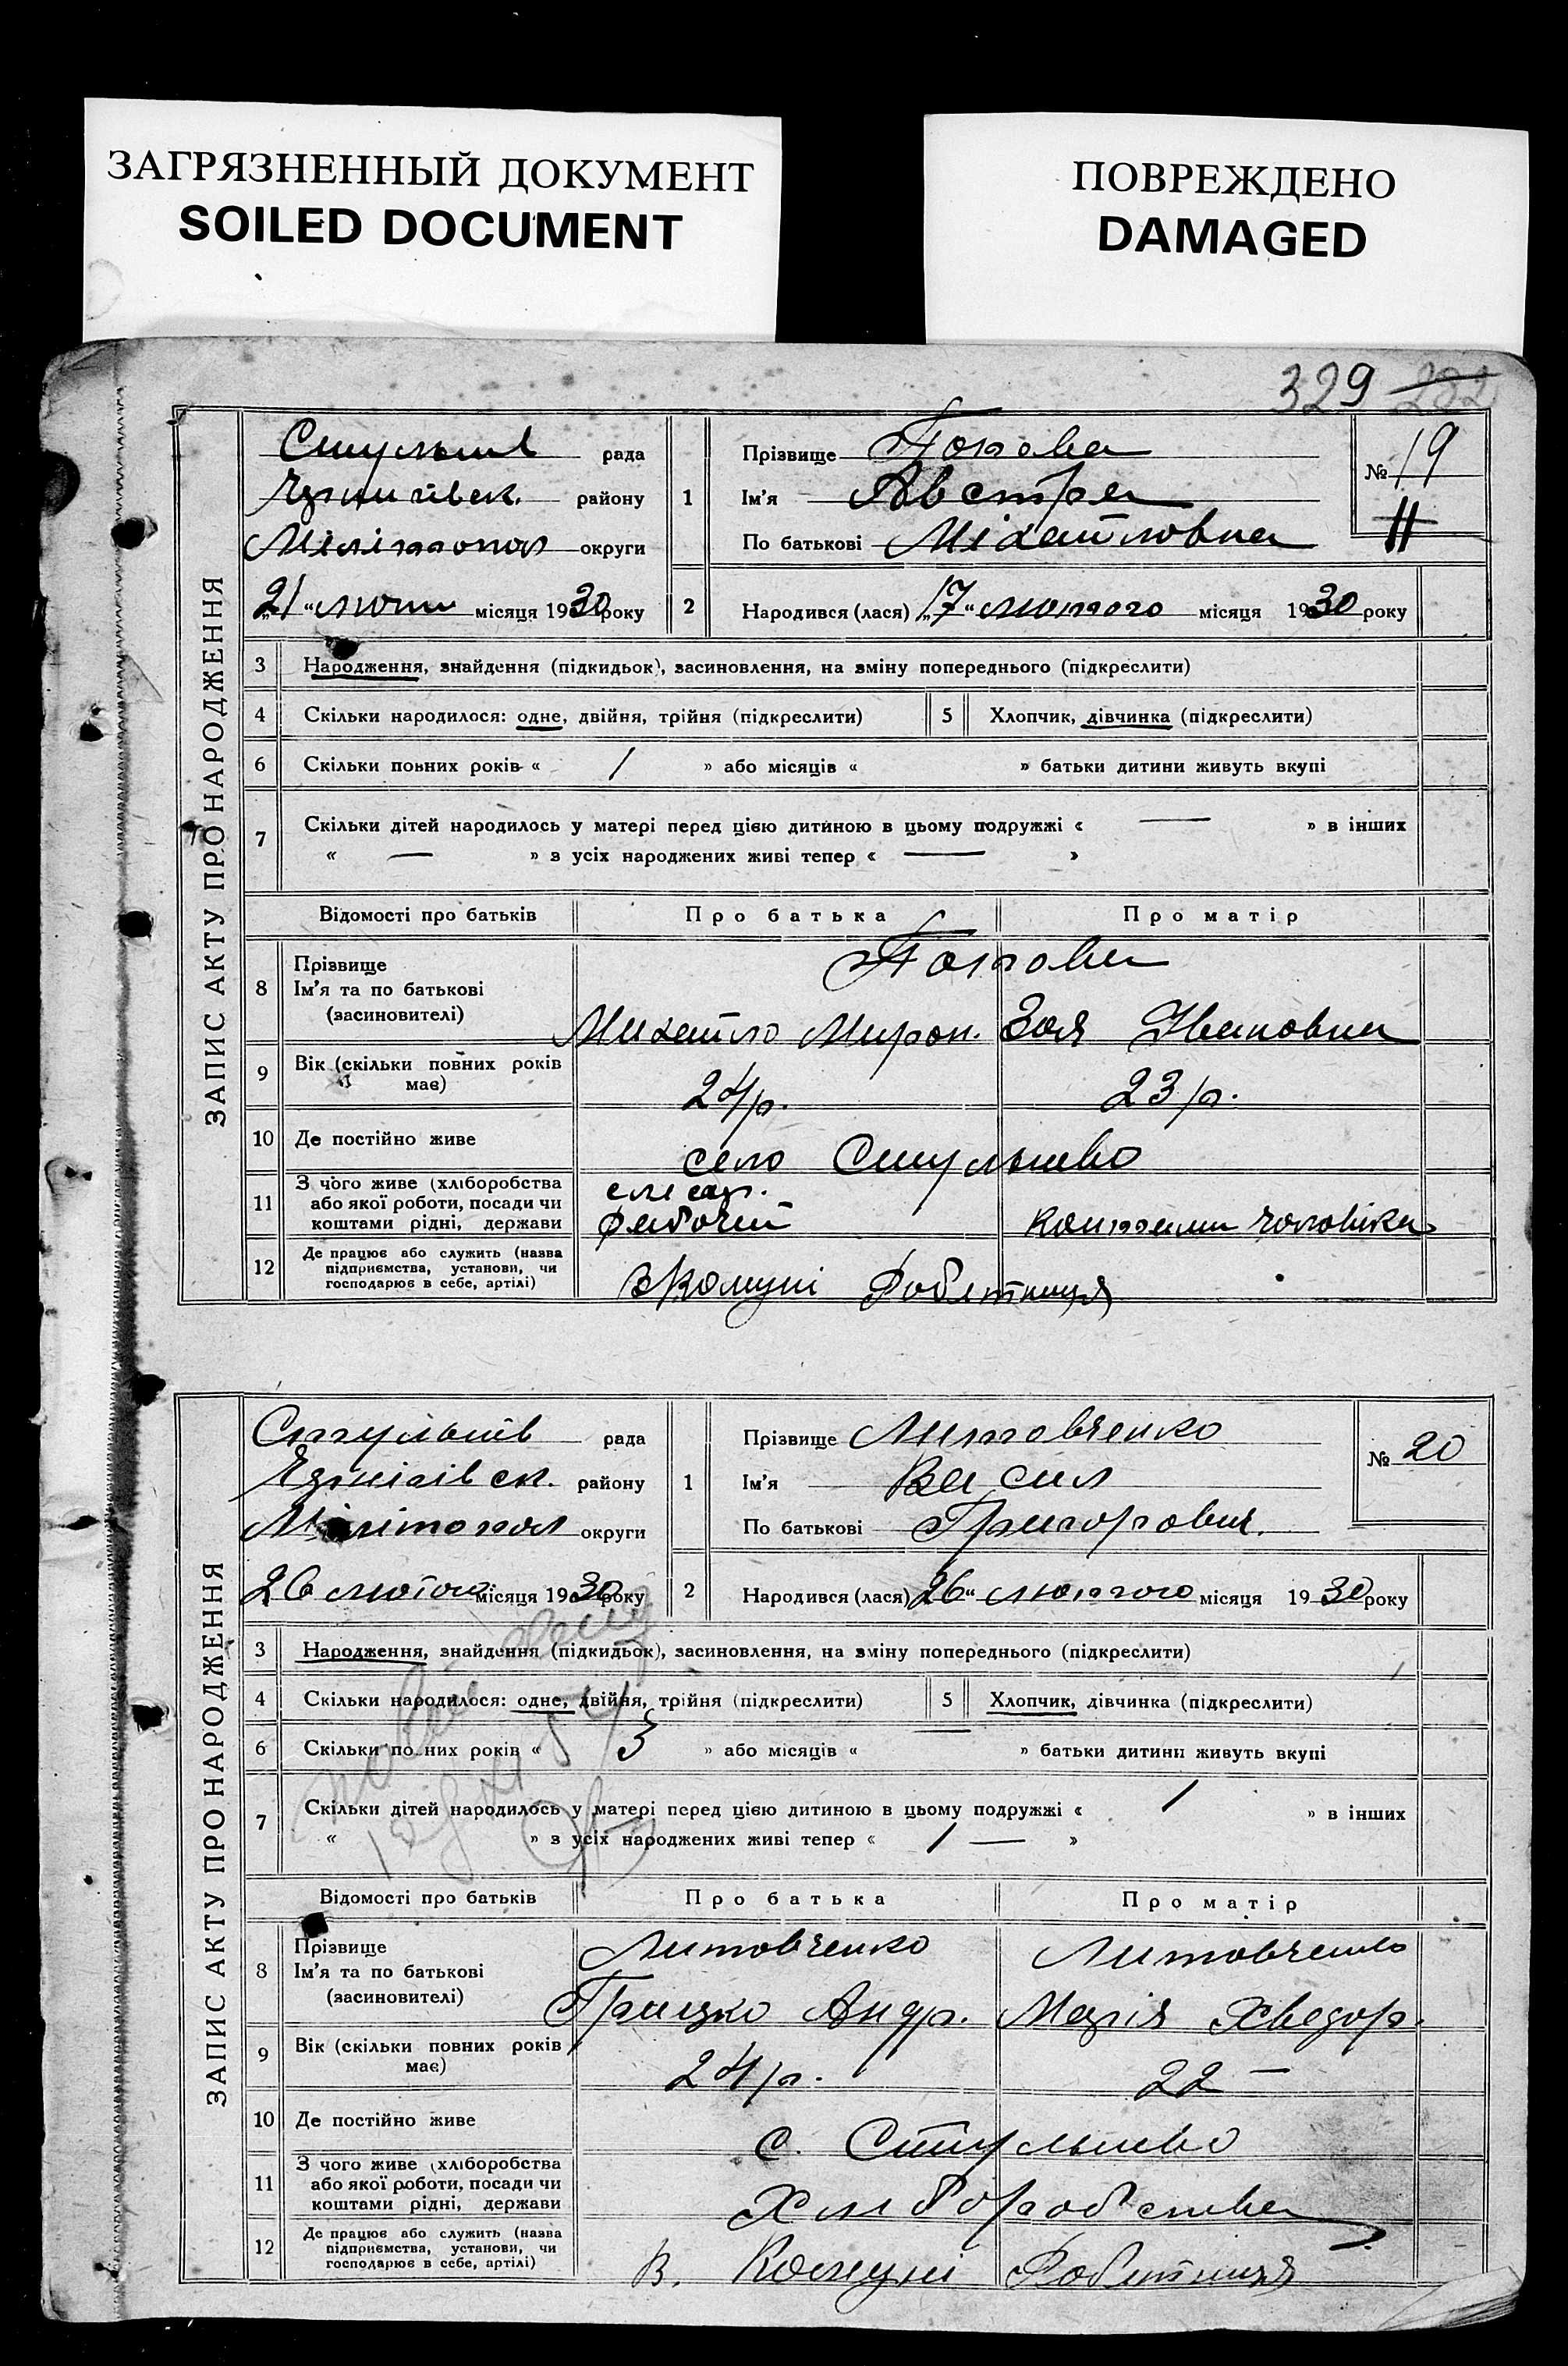 ЗАГРЯЗНЕННЫЙ ДОКУМЕНТ
SOILED DOCUMENT
ПОВРЕЖДЕНО
DAMAGED
329 222
ЗАПИС АКТУ ПРО НАРОДЖЕННЯ
рада
району
Мелітопол округи
„21“ люти місяця 1930 року
1
Прізвище Попова
Ім'я Австра
По батькові Міхайловна
№ 19
2
Народився (лася) „17“ лютого місяця 1930 року
3 Народження, знайдення (підкидьок), засиновлення, на зміну попереднього (підкреслити)
4 Скільки народилося: одне, двійня, трійня (підкреслити) 5 Хлопчик, дівчинка (підкреслити)
6 Скільки повних років « 1 » або місяців « » батьки дитини живуть вкупі
7 Скільки дітей народилось у матері перед цією дитиною в цьому подружжі « — » в інших
« — » з усіх народжених живі тепер « — »
Відомості про батьків Про батька Про матір
8 Прізвище Ім'я та по батькові (засиновителі)
Попови
Михайло Мирон. Зоя Івановна
9 Вік (скільки повних років має) 24 р. 23 р.
10 Де постійно живе село Стульнево
11 З чого живе (хліборобства або якої роботи, посади чи коштами рідні, держави
слесар.
рабочий коштами чоловіка
12 Де працює або служить (назва підприємства, установи, чи господарює в себе, артілі)
в Комуні Робітниця
ЗАПИС АКТУ ПРО НАРОДЖЕННЯ
рада
району
Мелітопол округи
26 лютого місяця 1930 року
1
Прізвище Литовченко
Ім'я Васил
По батькові Григорович.
№ 20
2
Народився (лася) „26“ лютого місяця 1930 року
3 Народження, знайдення (підкидьок), засиновлення, на зміну попереднього (підкреслити)
4 Скільки народилося: одне, двійня, трійня (підкреслити) 5 Хлопчик, дівчинка (підкреслити)
6 Скільки повних років « 3 » або місяців « — » батьки дитини живуть вкупі
7 Скільки дітей народилось у матері перед цією дитиною в цьому подружжі « 1 » в інших
« » з усіх народжених живі тепер « 1 — »
Відомості про батьків Про батька Про матір
8 Прізвище Ім'я та по батькові (засиновителі)
Литовченко Литовченко
Грицко Андр. Марія Хведор.
9 Вік (скільки повних років має) 24 р. 22 —
10 Де постійно живе с. Стульнево
11 З чого живе (хліборобства або якої роботи, посади чи коштами рідні, держави
Хліборобства
12 Де працює або служить (назва підприємства, установи, чи господарює в себе, артілі)
В. Комуні Робітниця